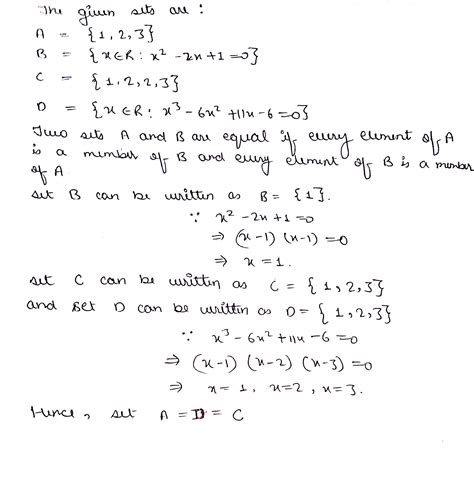 The given sets are :
A = {1, 2, 3}
B = {x∈R : x² -2x+1=0}
C = {1, 2, 2, 3}
D = {x∈R : x³ - 6x² +11x-6=0}
Two sets A and B are equal if every element of A
is a member of B and every element of B is a member
of A
set B can be written as B = {1}.
∵ x² -2x+1=0
⇒ (x-1) (x-1)=0
⇒ x=1.
set C can be written as C = {1, 2, 3}
and set D can be written as D= {1, 2, 3}
∵ x³ - 6x² +11x -6=0
⇒ (x-1) (x-2) (x-3) =0
⇒ x=1, x=2, x=3.
Hence, set A = D = C